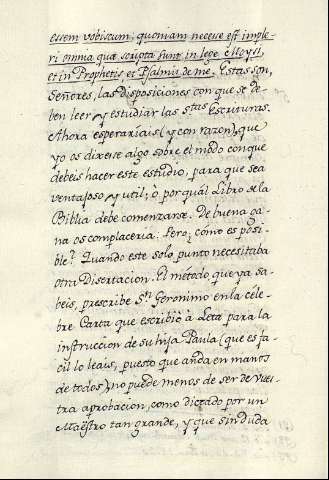 essem vobiscum; quoniam necesse est imple-
ri omnia quæ scripta sunt in lege Moysi,
et in Prophetis, et Psalmis de me. Estas son,
Señores, las disposiciones con que se de-
ben leer y estudiar las S.tas Escrituras.
Ahora esperariais (y con razon), que
yo os dixese algo sobre el modo con que
debeis hacer este estudio, para que sea
ventajoso y util; ò por quál Libro se la
Biblia debe comenzarse. De buena ga-
na os complaceria. Pero ¿cómo es posi-
ble? Quando este solo punto necesitaba
otra Disertacion. El metodo que ya sa-
beis, prescribe S.n Geronimo en la céle-
bre Carta que escribiò à Leta para la
instruccion de su hija Paula (que es fa-
cil lo leais, puesto que anda en manos
de todos), no puede menos de ser de vues-
tra aprobacion, como dictado por un
Maestro tan grande, y que sin duda